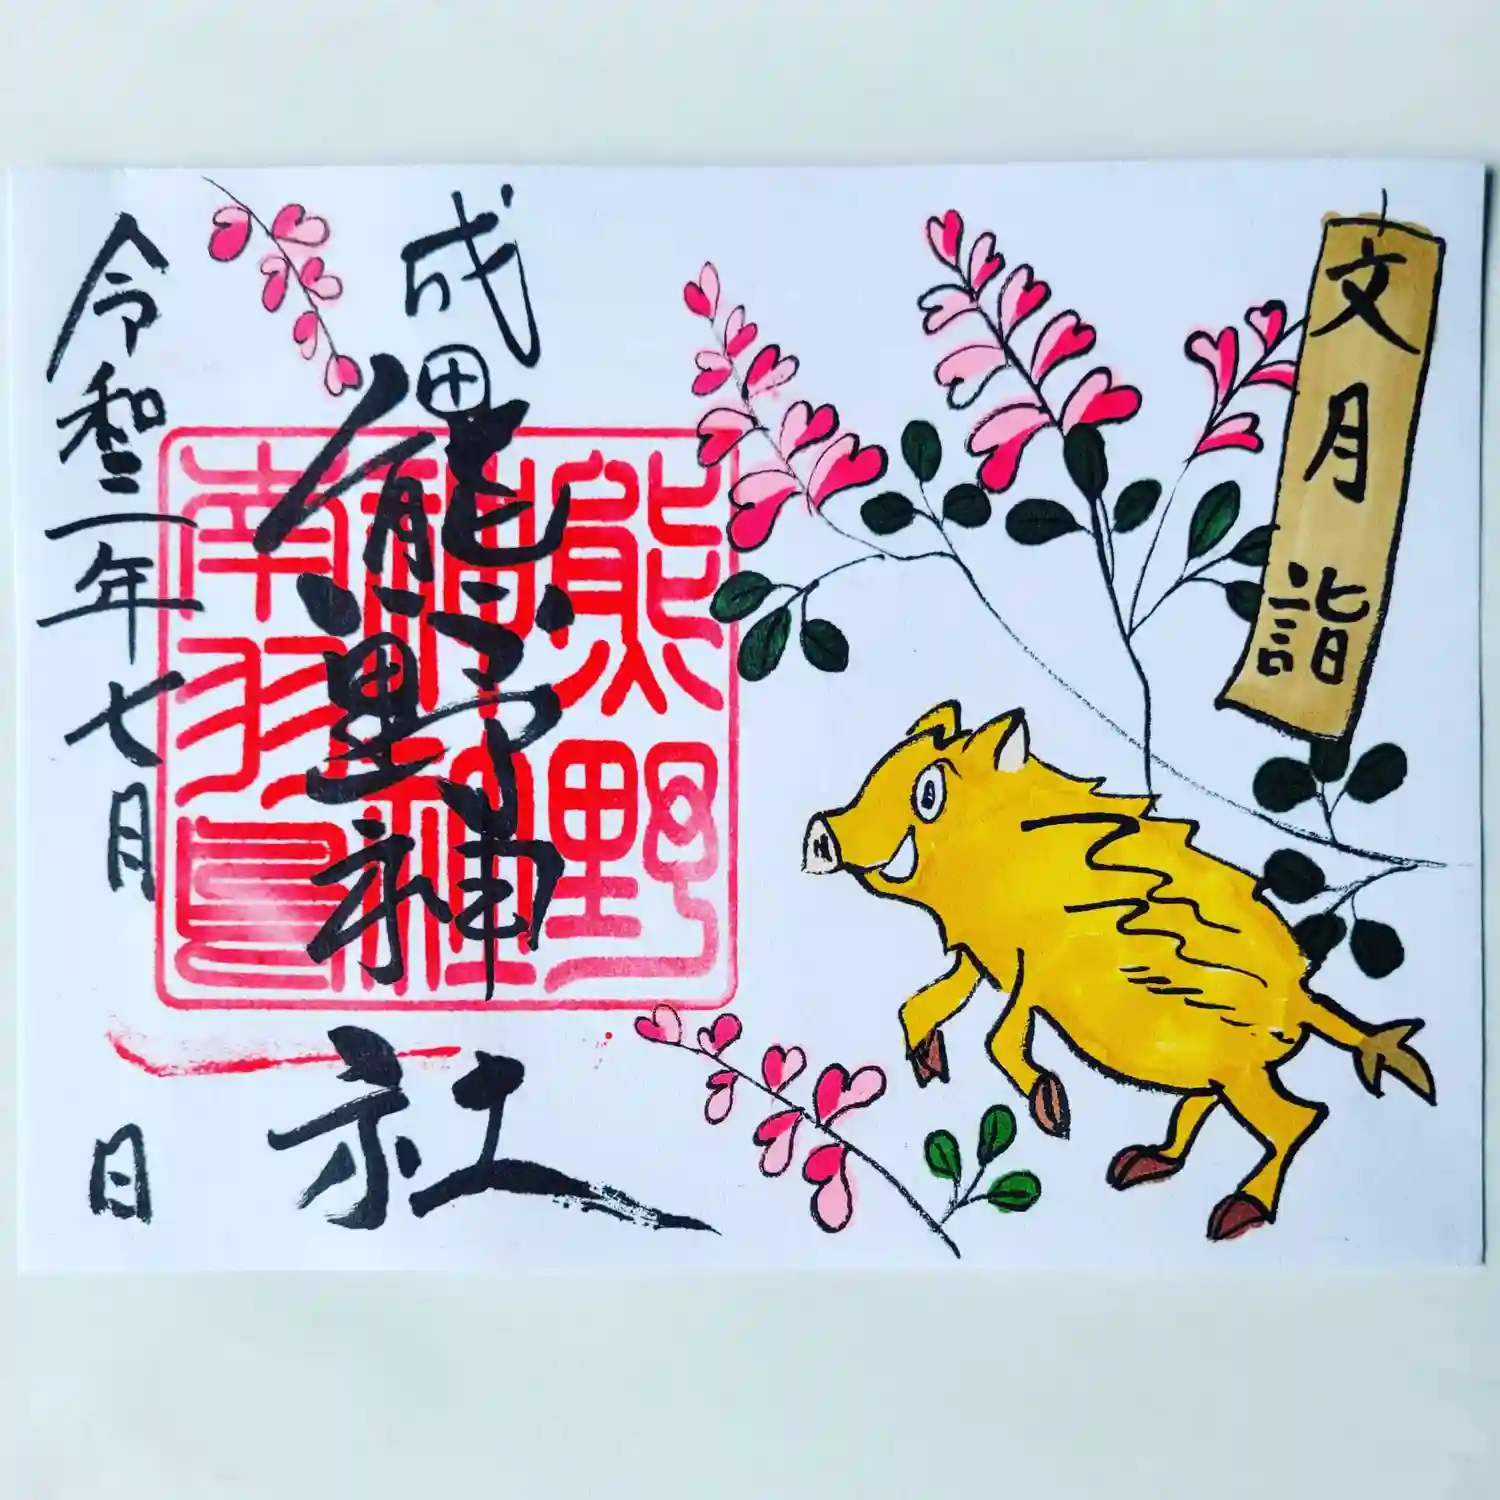 文月詣
成田
熊野神社
令和三年七月 日
熊野
南羽鳥